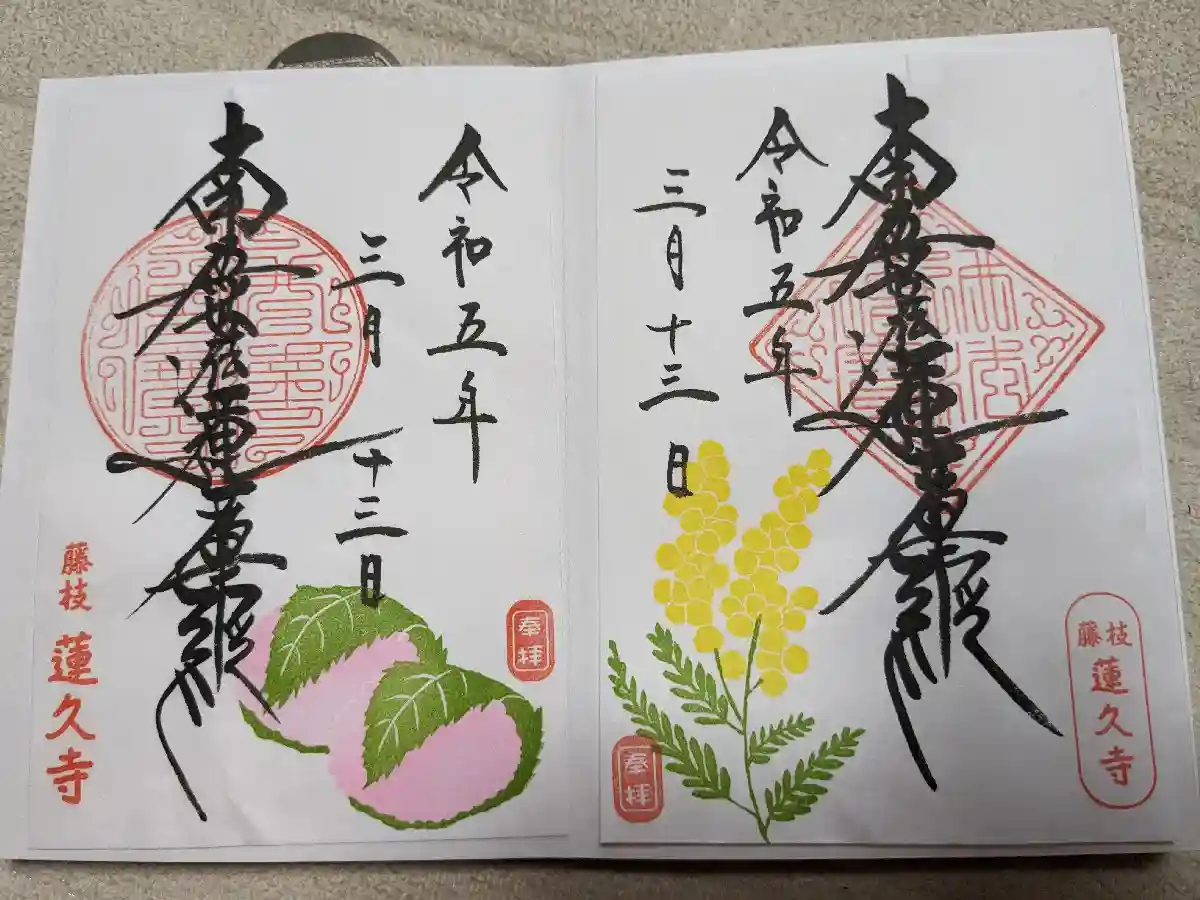 南無妙法蓮華経
令和五年
三月十三日
奉拝
藤枝
蓮久寺
令和五年
三月十三日
南無妙法蓮華経
奉拝
藤枝
蓮久寺